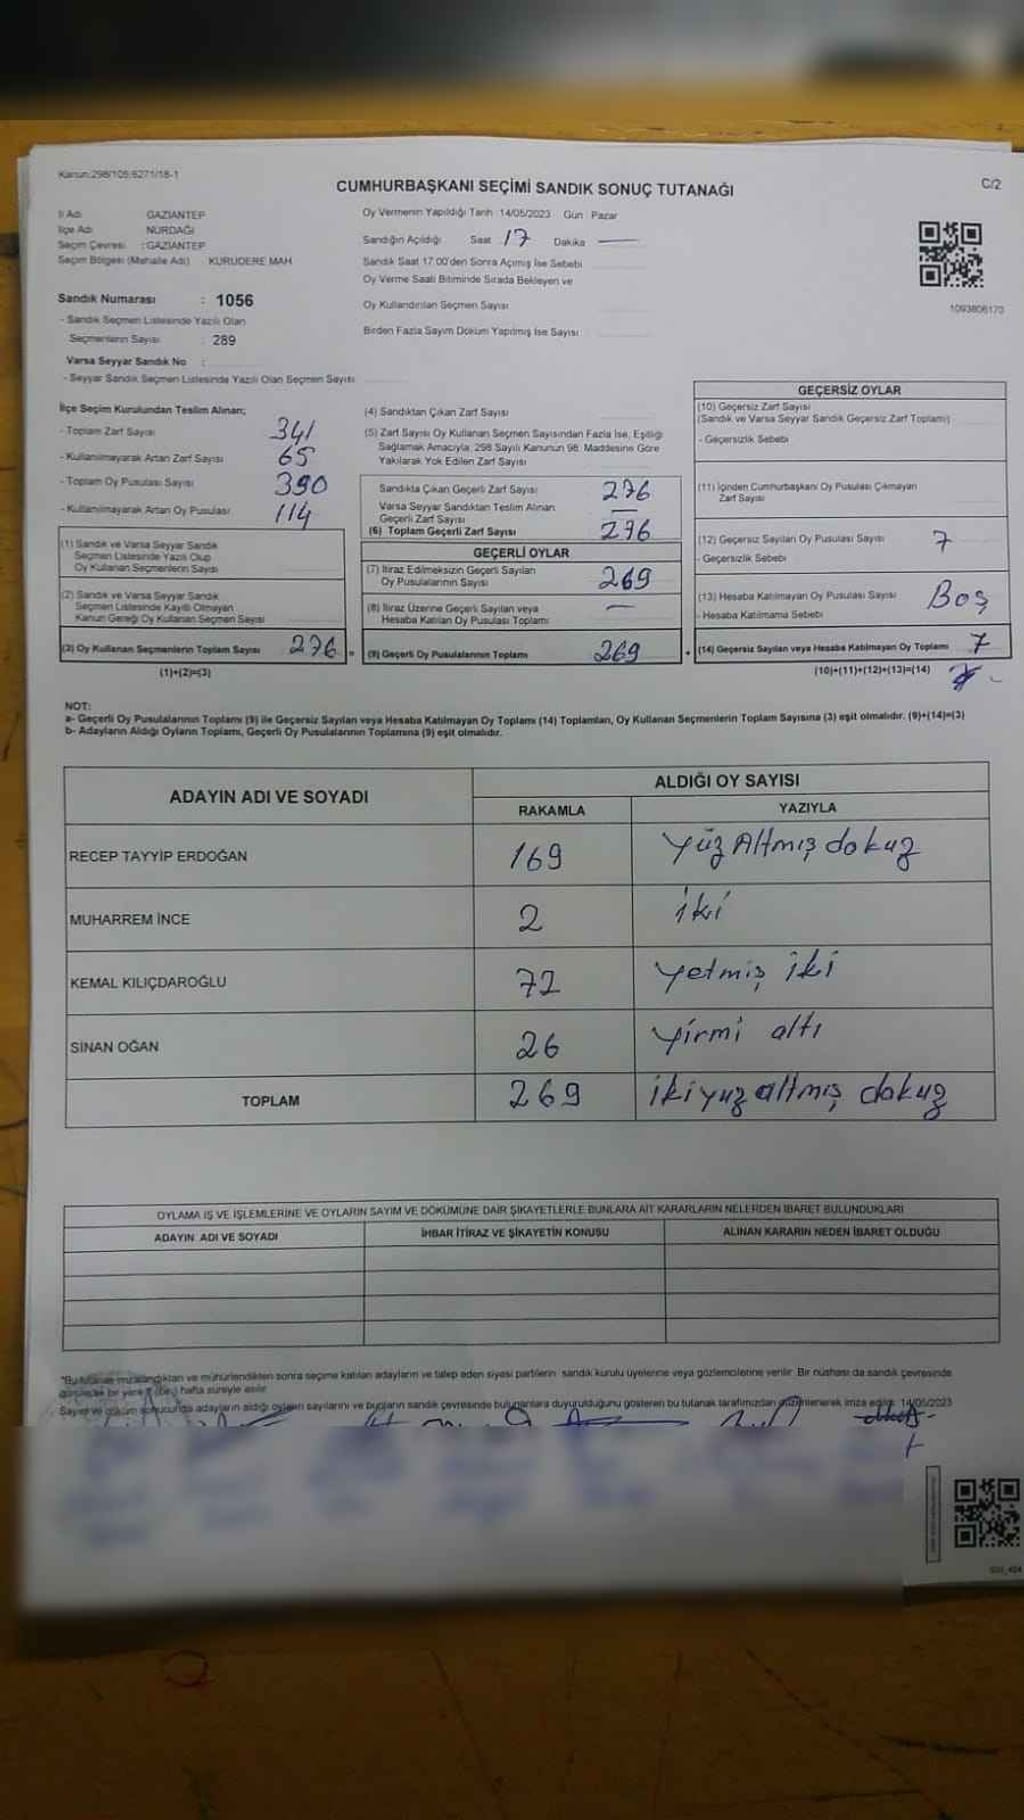 Kanun:298/105;6271/18-1
CUMHURBAŞKANI SEÇİMİ SANDIK SONUÇ TUTANAĞI
C/2
İl Adı GAZİANTEP
İlçe Adı NURDAĞI
Seçim Çevresi : GAZİANTEP
Seçim Bölgesi (Mahalle Adı) KURUDERE MAH
Oy Vermenin Yapıldığı Tarih 14/05/2023 Gün Pazar
Sandığın Açıldığı Saat 17 Dakika —
Sandık Saat 17:00'den Sonra Açılmış İse Sebebi
Oy Verme Saati Bitiminde Sırada Bekleyen ve
Oy Kullandırılan Seçmen Sayısı
Birden Fazla Sayım Döküm Yapılmış İse Sayısı
1093806170
Sandık Numarası : 1056
- Sandık Seçmen Listesinde Yazılı Olan
Seçmenlerin Sayısı : 289
Varsa Seyyar Sandık No :
- Seyyar Sandık Seçmen Listesinde Yazılı Olan Seçmen Sayısı
İlçe Seçim Kurulundan Teslim Alınan;
- Toplam Zarf Sayısı 341
- Kullanılmayarak Artan Zarf Sayısı 65
- Toplam Oy Pusulası Sayısı 390
- Kullanılmayarak Artan Oy Pusulası 114
(1) Sandık ve Varsa Seyyar Sandık
Seçmen Listesinde Yazılı Olup
Oy Kullanan Seçmenlerin Sayısı
(2) Sandık ve Varsa Seyyar Sandık
Seçmen Listesinde Kayıtlı Olmayan
Kanun Gereği Oy Kullanan Seçmen Sayısı
(3) Oy Kullanan Seçmenlerin Toplam Sayısı 276 =
(1)+(2)=(3)
(4) Sandıktan Çıkan Zarf Sayısı
(5) Zarf Sayısı Oy Kullanan Seçmen Sayısından Fazla İse, Eşitliği
Sağlamak Amacıyla, 298 Sayılı Kanunun 98. Maddesine Göre
Yakılarak Yok Edilen Zarf Sayısı
Sandıkta Çıkan Geçerli Zarf Sayısı 276
Varsa Seyyar Sandıktan Teslim Alınan
Geçerli Zarf Sayısı —
(6) Toplam Geçerli Zarf Sayısı 276
GEÇERLİ OYLAR
(7) İtiraz Edilmeksizin Geçerli Sayılan
Oy Pusulalarının Sayısı 269
(8) İtiraz Üzerine Geçerli Sayılan veya
Hesaba Katılan Oy Pusulası Toplamı —
(9) Geçerli Oy Pusulalarının Toplamı 269 +
GEÇERSİZ OYLAR
(10) Geçersiz Zarf Sayısı
(Sandık ve Varsa Seyyar Sandık Geçersiz Zarf Toplamı)
- Geçersizlik Sebebi
(11) İçinden Cumhurbaşkanı Oy Pusulası Çıkmayan
Zarf Sayısı
(12) Geçersiz Sayılan Oy Pusulası Sayısı 7
- Geçersizlik Sebebi
(13) Hesaba Katılmayan Oy Pusulası Sayısı Boş
- Hesaba Katılmama Sebebi
(14) Geçersiz Sayılan veya Hesaba Katılmayan Oy Toplamı 7
(10)+(11)+(12)+(13)=(14)
NOT:
a- Geçerli Oy Pusulalarının Toplamı (9) ile Geçersiz Sayılan veya Hesaba Katılmayan Oy Toplamı (14) Toplamları, Oy Kullanan Seçmenlerin Toplam Sayısına (3) eşit olmalıdır. (9)+(14)=(3)
b- Adayların Aldığı Oyların Toplamı, Geçerli Oy Pusulalarının Toplamına (9) eşit olmalıdır.
ADAYIN ADI VE SOYADI
ALDIĞI OY SAYISI
RAKAMLA YAZIYLA
RECEP TAYYİP ERDOĞAN 169 Yüz Altmış dokuz
MUHARREM İNCE 2 iki
KEMAL KILIÇDAROĞLU 72 Yetmiş iki
SİNAN OĞAN 26 Yirmi altı
TOPLAM 269 ikiyuz altmış dokuz
OYLAMA İŞ VE İŞLEMLERİNE VE OYLARIN SAYIM VE DÖKÜMÜNE DAİR ŞİKAYETLERLE BUNLARA AİT KARARLARIN NELERDEN İBARET BULUNDUKLARI
ADAYIN ADI VE SOYADI İHBAR İTİRAZ VE ŞİKAYETİN KONUSU ALINAN KARARIN NEDEN İBARET OLDUĞU
*Bu tutanak imzalandıktan ve mühürlendikten sonra seçime katılan adayların ve talep eden siyasi partilerin sandık kurulu üyelerine veya gözlemcilerine verilir. Bir nüshası da sandık çevresinde
görülecek bir yere 1 (bir) hafta süreyle asılır.
Sayım ve döküm sonucunda adayların aldığı oyların sayılarını ve bunların sandık çevresinde bulunanlara duyurulduğunu gösteren bu tutanak tarafımızdan düzenlenerek imza edildi. 14/05/2023